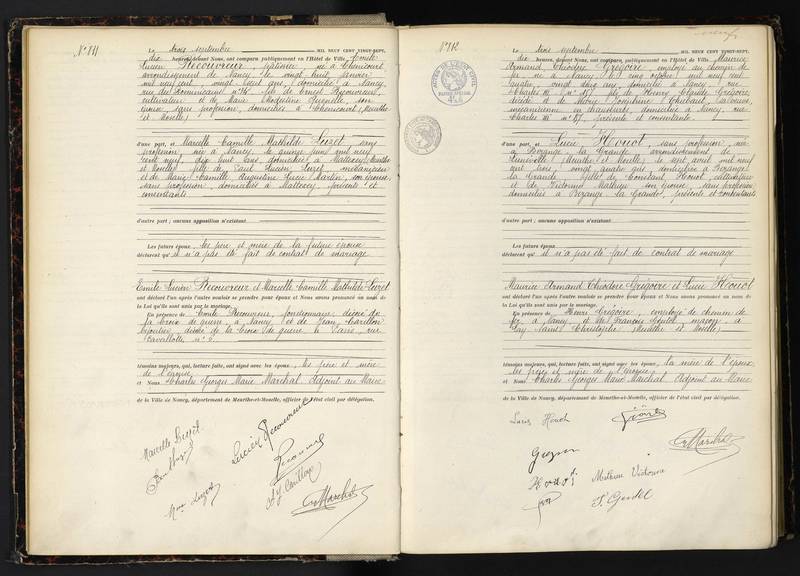 N° 111
Le trois septembre MIL NEUF CENT VINGT-SEPT,
dix heures, devant Nous, ont comparu publiquement en l'Hôtel de Ville, Emile
Lucien Recouvreur, pâtissier, né à Chenicourt
arrondissement de Nancy, le vingt huit janvier
mil neuf cent, vingt sept ans, domicilié à Nancy,
rue des Dominicains n° fils de Ernest Recouvreur,
cultivateur et de Marie son
épouse, sans profession, domiciliés à Chenicourt (Meurthe
et Moselle)
d'une part, et Marcelle Camille Mathilde Luzet, sans
profession, née à Nancy, le quinze juin mil neuf
cent neuf, dix huit ans, domiciliée à Malleloy, Meurthe
et Moselle, fille de Paul Lucien Luzet, mécanicien
et de Marie Camille Augustine Lucie Martin, son épouse,
sans profession, domiciliés à Malleloy, présents et
consentants
d'autre part; aucune opposition n'existant
Les futurs époux, les père et mère de la future épouse
déclarent qu'il n'a pas été fait de contrat de mariage
Emile Lucien Recouvreur et Marcelle Camille Mathilde Luzet
ont déclaré l'un après l'autre vouloir se prendre pour époux et Nous avons prononcé au nom de
la Loi qu'ils sont unis par le mariage.
En présence de Emile Recouvreur, fonctionnaire, décoré de
la croix de guerre, à Nancy, et de Jean Carillon
bijoutier, décoré de la croix de guerre, à Paris, rue
Cavallotti, n°
témoins majeurs, qui, lecture faite, ont signé avec les époux, les père et mère
de l'épouse
et Nous Charles Georges Marie Maréchal Adjoint au Maire
de la Ville de Nancy, département de Meurthe-et-Moselle, officier de l'état civil par délégation.
Marcelle Luzet
Lucien Recouvreur
Mme Luzet
Carillon
Maréchal
N° 112
Le trois septembre MIL NEUF CENT VINGT-SEPT,
dix heures, devant Nous, ont comparu publiquement en l'Hôtel de Ville, Maurice
Armand Théodore Grégoire, employé au chemin de
fer, né à Nancy, le cinq octobre mil neuf cent
quatre, vingt deux ans, domicilié à Nancy, rue
Charles III n° 87, fils de Henry Claude Grégoire,
décédé et de Marie Joséphine Thiébaut, sa veuve,
domiciliée à Nancy, rue
Charles III n° 87, présente et consentante
d'une part, et Lucie Houot, sans profession, née
à Bezange la Grande, arrondissement de
Lunéville (Meurthe et Moselle) le sept avril mil neuf
cent trois, vingt quatre ans, domiciliée à Bezange
la Grande, fille de Constant Houot, cultivateur
et de Victorine Mathieu, son épouse, sans profession
domiciliés à Bezange la Grande, présents et consentants
d'autre part; aucune opposition n'existant
Les futurs époux,
déclarent qu'il n'a pas été fait de contrat de mariage
Maurice Armand Théodore Grégoire et Lucie Houot
ont déclaré l'un après l'autre vouloir se prendre pour époux et Nous avons prononcé au nom de
la Loi qu'ils sont unis par le mariage.
En présence de Henri Grégoire, employé de chemin de
fer à Nancy, et de François Gendel, maçon, à
Lay Saint Christophe (Meurthe et Moselle)
témoins majeurs, qui, lecture faite, ont signé avec les époux, la mère de l'époux
les père et mère de l'épouse
et Nous Charles Georges Marie Maréchal Adjoint au Maire
de la Ville de Nancy, département de Meurthe-et-Moselle, officier de l'état civil par délégation.
Lucie Houot
Houot
Mathieu Victorine
F. Gendel
Maréchal